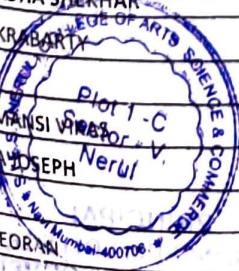 SHEKHAR
KRABARTY
MANSI VIKAS
JOSEPH
EORAN
LEGE OF ARTS SCIENCE & COMMERCE
NERUL
Plot 1 - C
Sector - V,
Nerul
Navi Mumbai-400706.